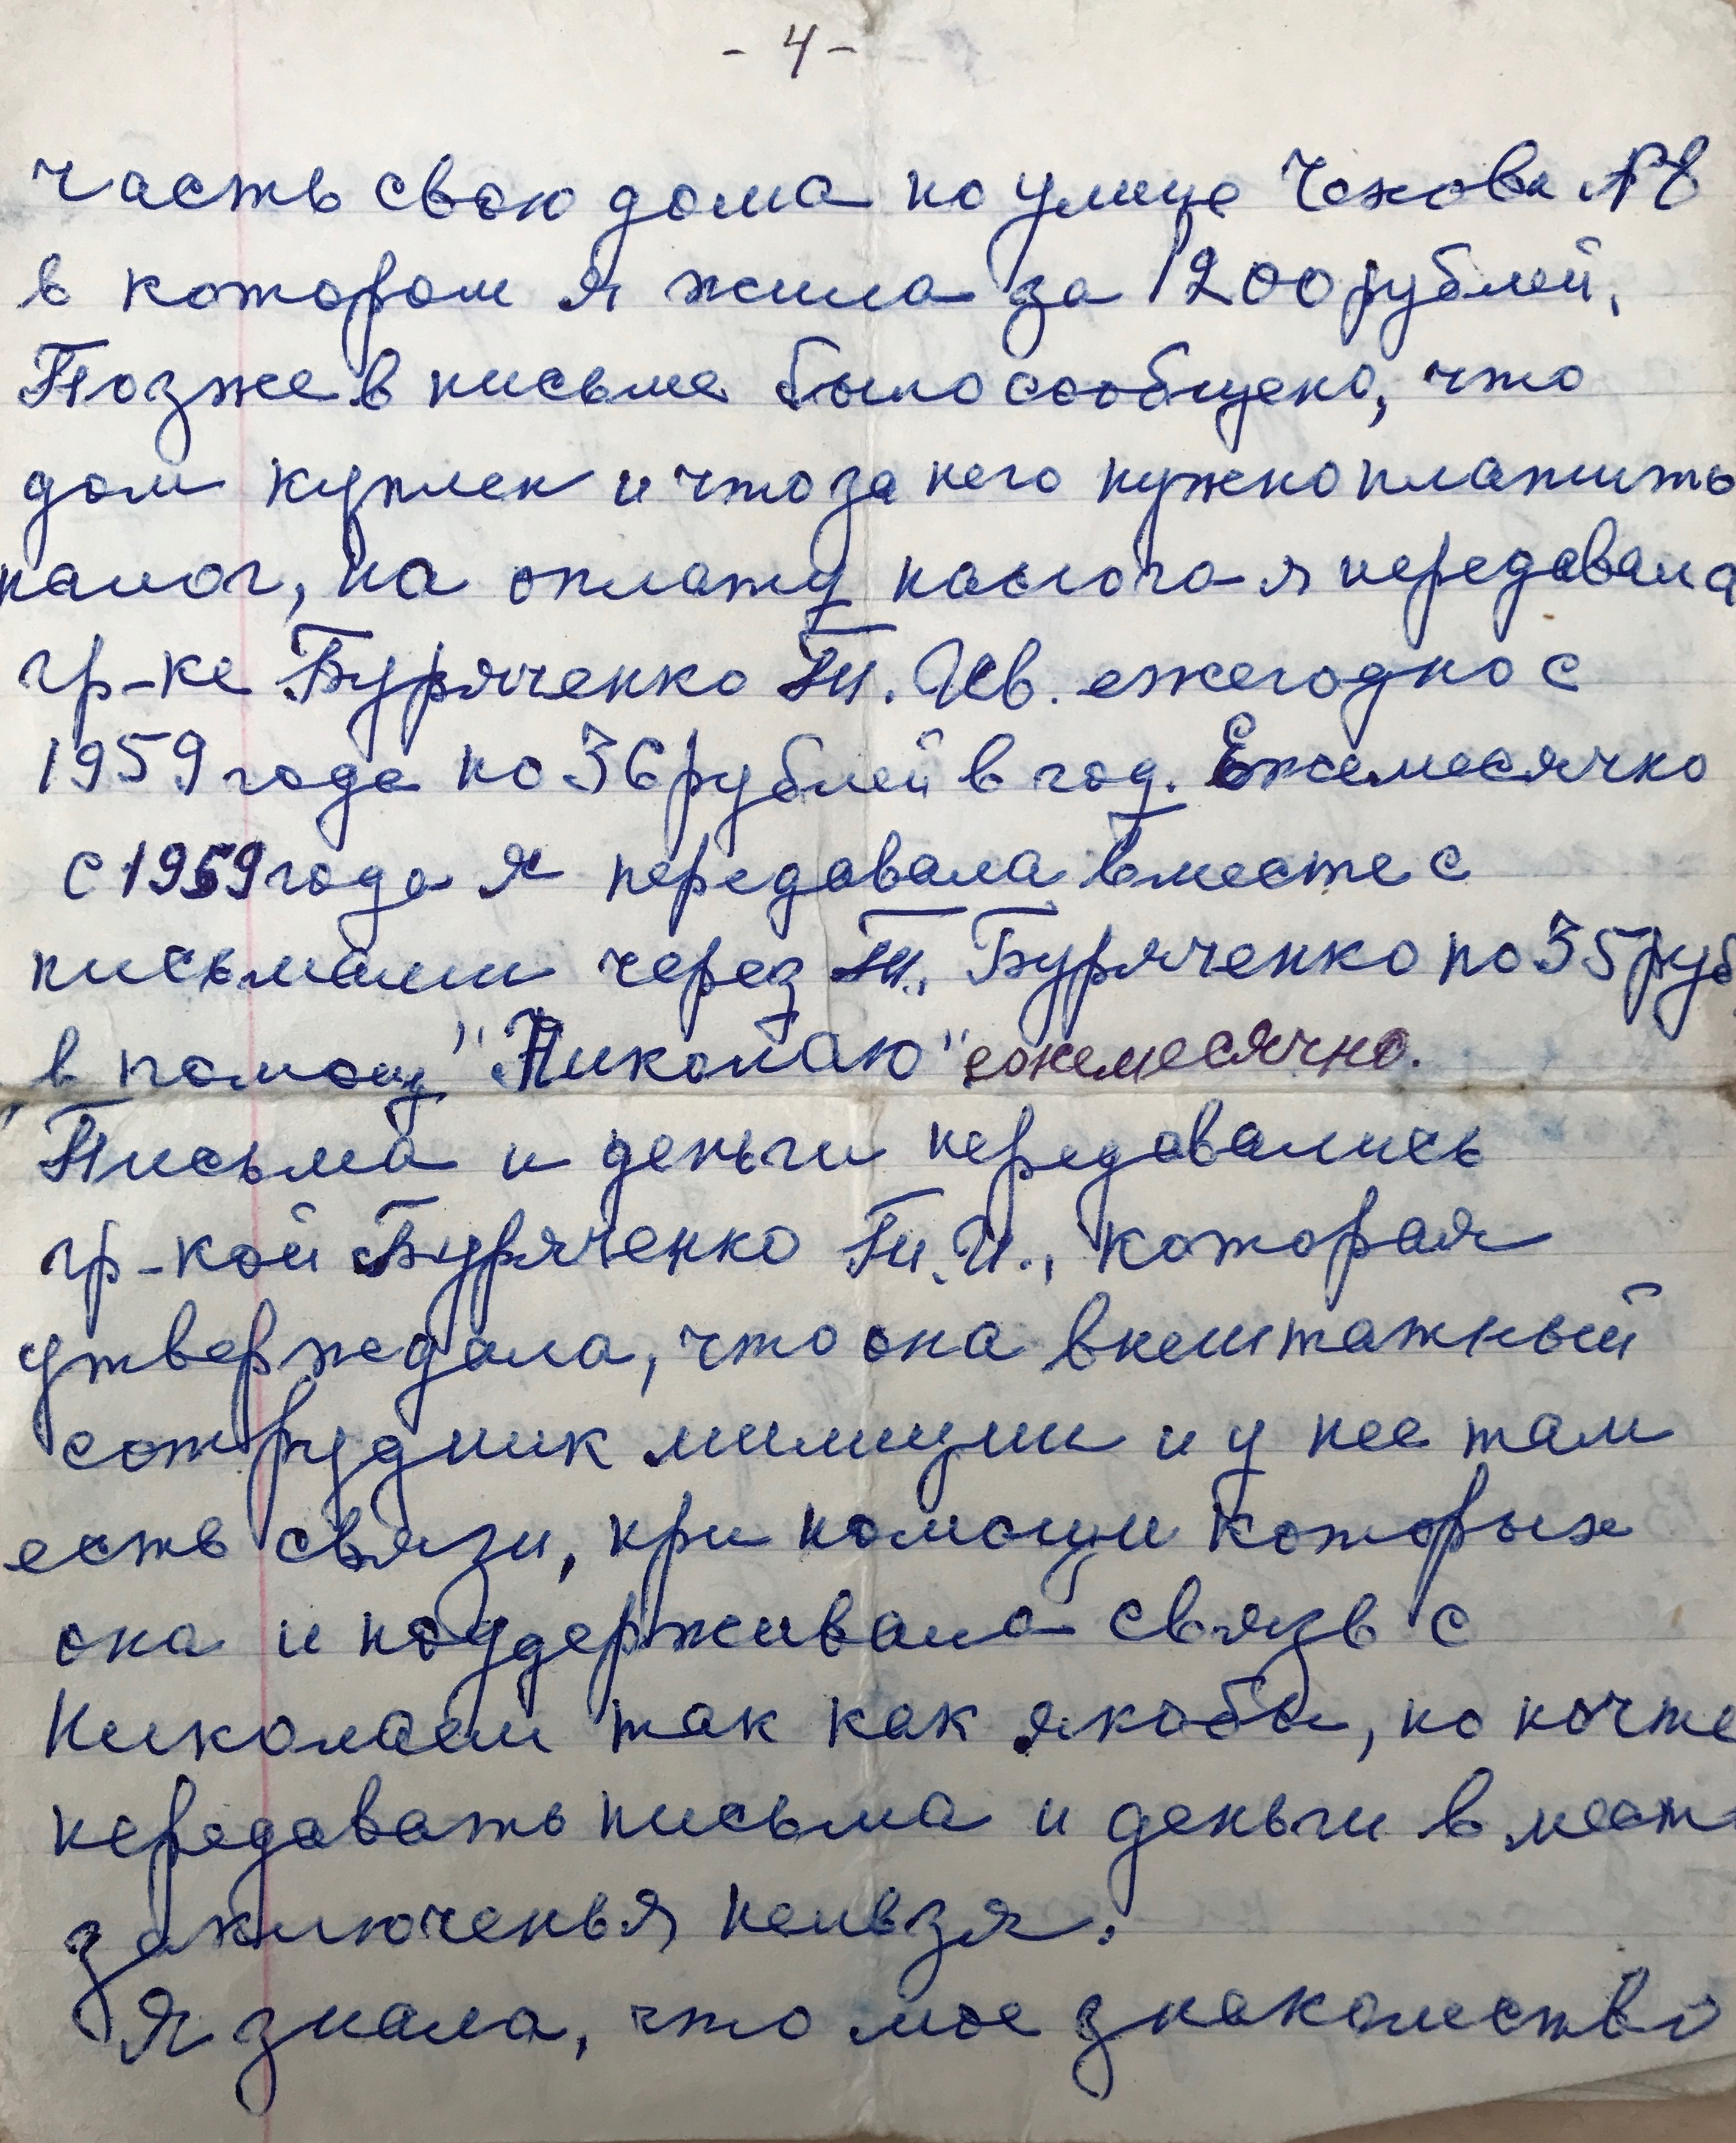 - 4 -
часть свою дома по улице Чехова №8
в котором я жила за 1200 рублей,
Позже в письме было сообщено, что
дом куплен и что за него нужно платить
налог, на оплату налога я передавала
гр-ке Буряченко Т. Ив. ежегодно с
1959 года по 36 рублей в год. Ежемесячно
с 1959 года я передавала вместе с
письмами через Т. Буряченко по 35 руб
в помощь "Николаю" ежемесячно.
Письма и деньги передавались
гр-кой Буряченко Т.И., которая
утверждала, что она внештатный
сотрудник милиции и у нее там
есть связи, при помощи которых
она и поддерживала связь с
Николаем так как якобы, по почте
передавать письма и деньги в мест
заключенья нельзя.
Я знала, что мое знакомство